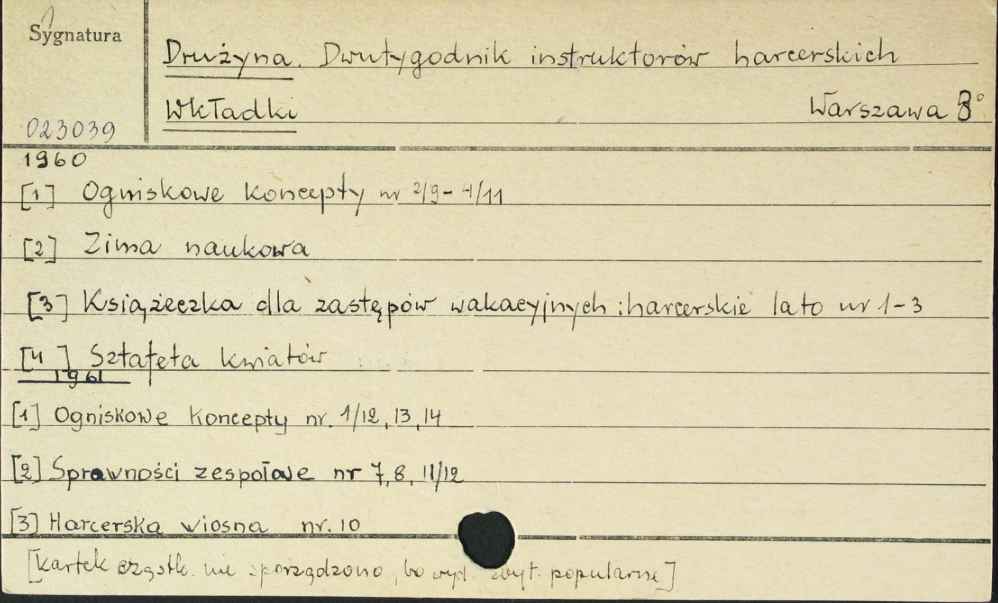 Sygnatura
Drużyna. Dwutygodnik instruktorów harcerskich
Wkładki Warszawa 8°
023039
1960
[1] Ogniskowe koncepty nr 2/9-4/11
[2] Zima naukowa
[3] Książeczka dla zastępów wakacyjnych: harcerskie lato nr 1-3
[4] Sztafeta kwiatów
1961
[1] Ogniskowe koncepty nr. 1/12, 13, 14
[2] Sprawności zespołowe nr 7, 8, 11/12
[3] Harcerska wiosna nr. 10
[kartek cząstk. nie sporządzono, bo wyd. zbyt. popularne]